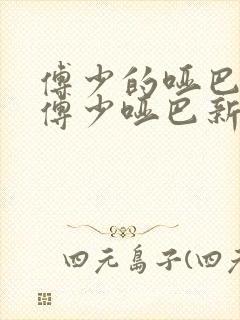 傅少的哑巴
傅少哑巴新
四元岛子(四元